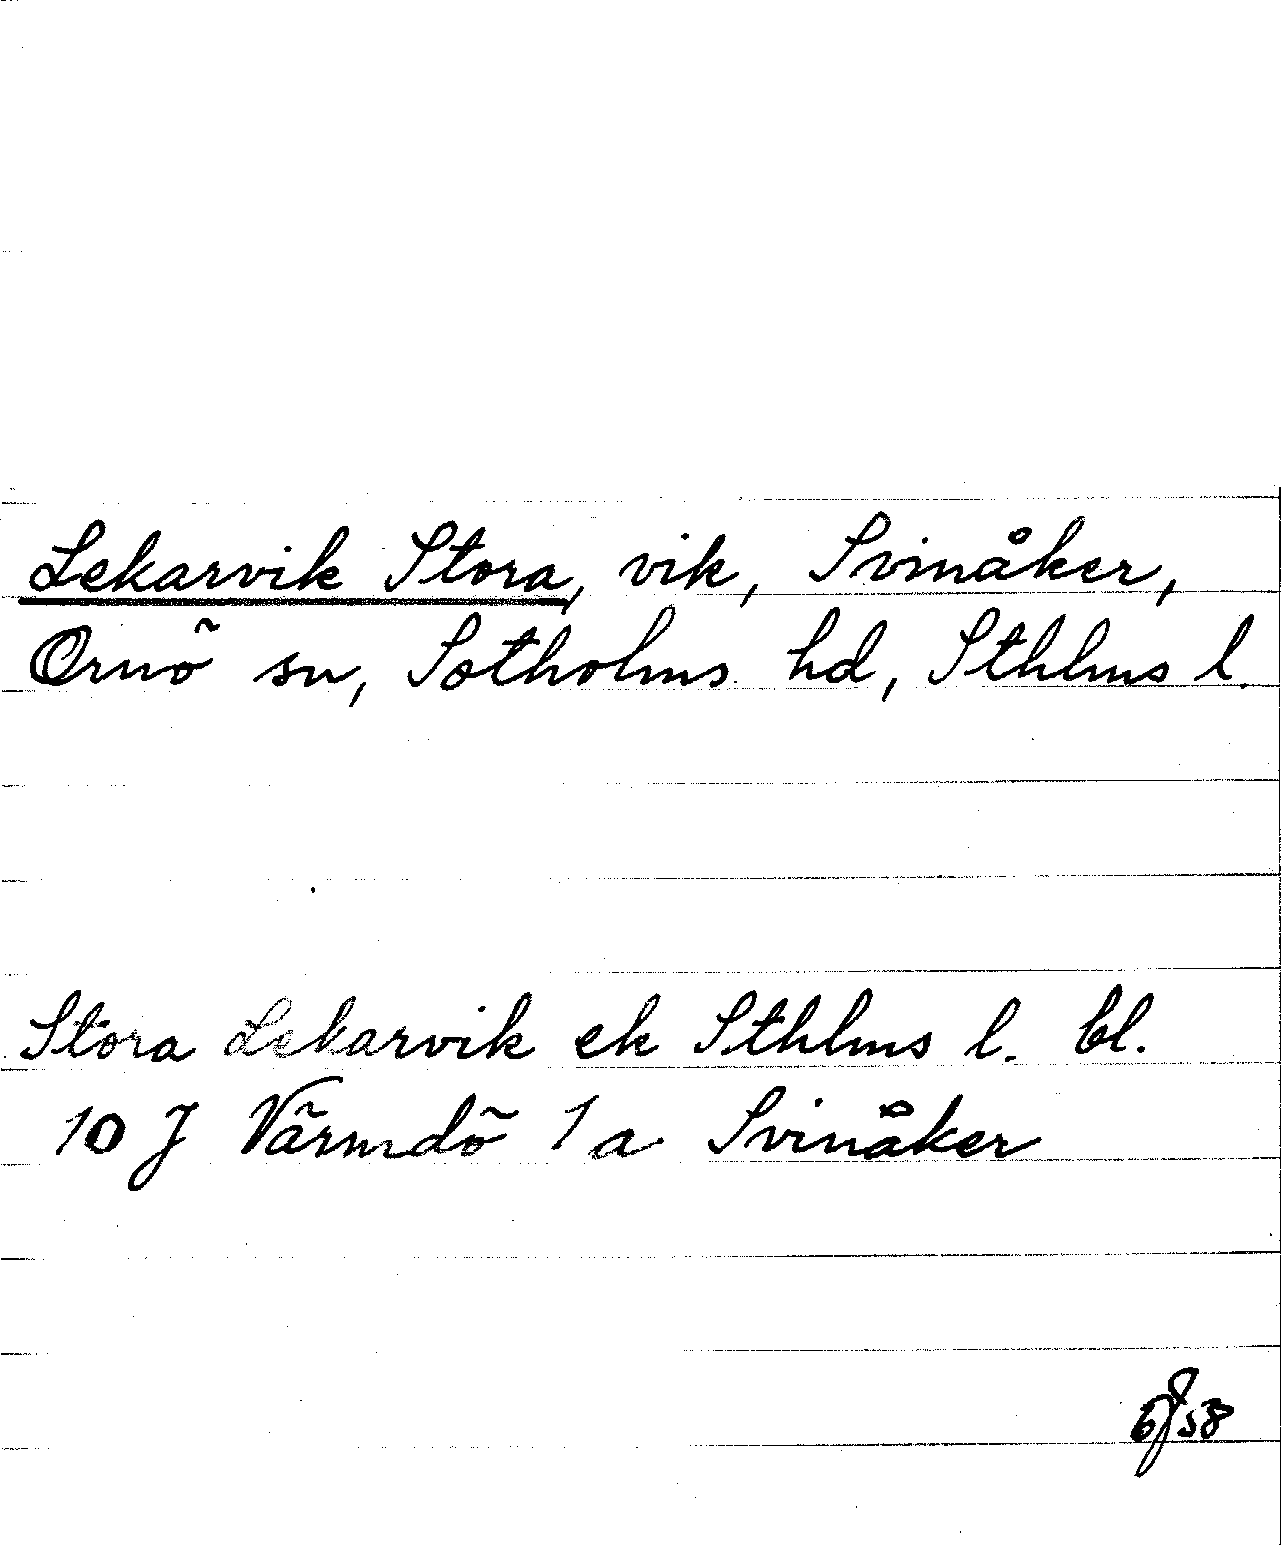 Lekarvik Stora, vik, Svinåker,
Ornö sn, Sotholms hd, Sthlms l.
Stora Lekarvik ek Sthlms l. bl.
10 J Värmdö 1 a Svinåker